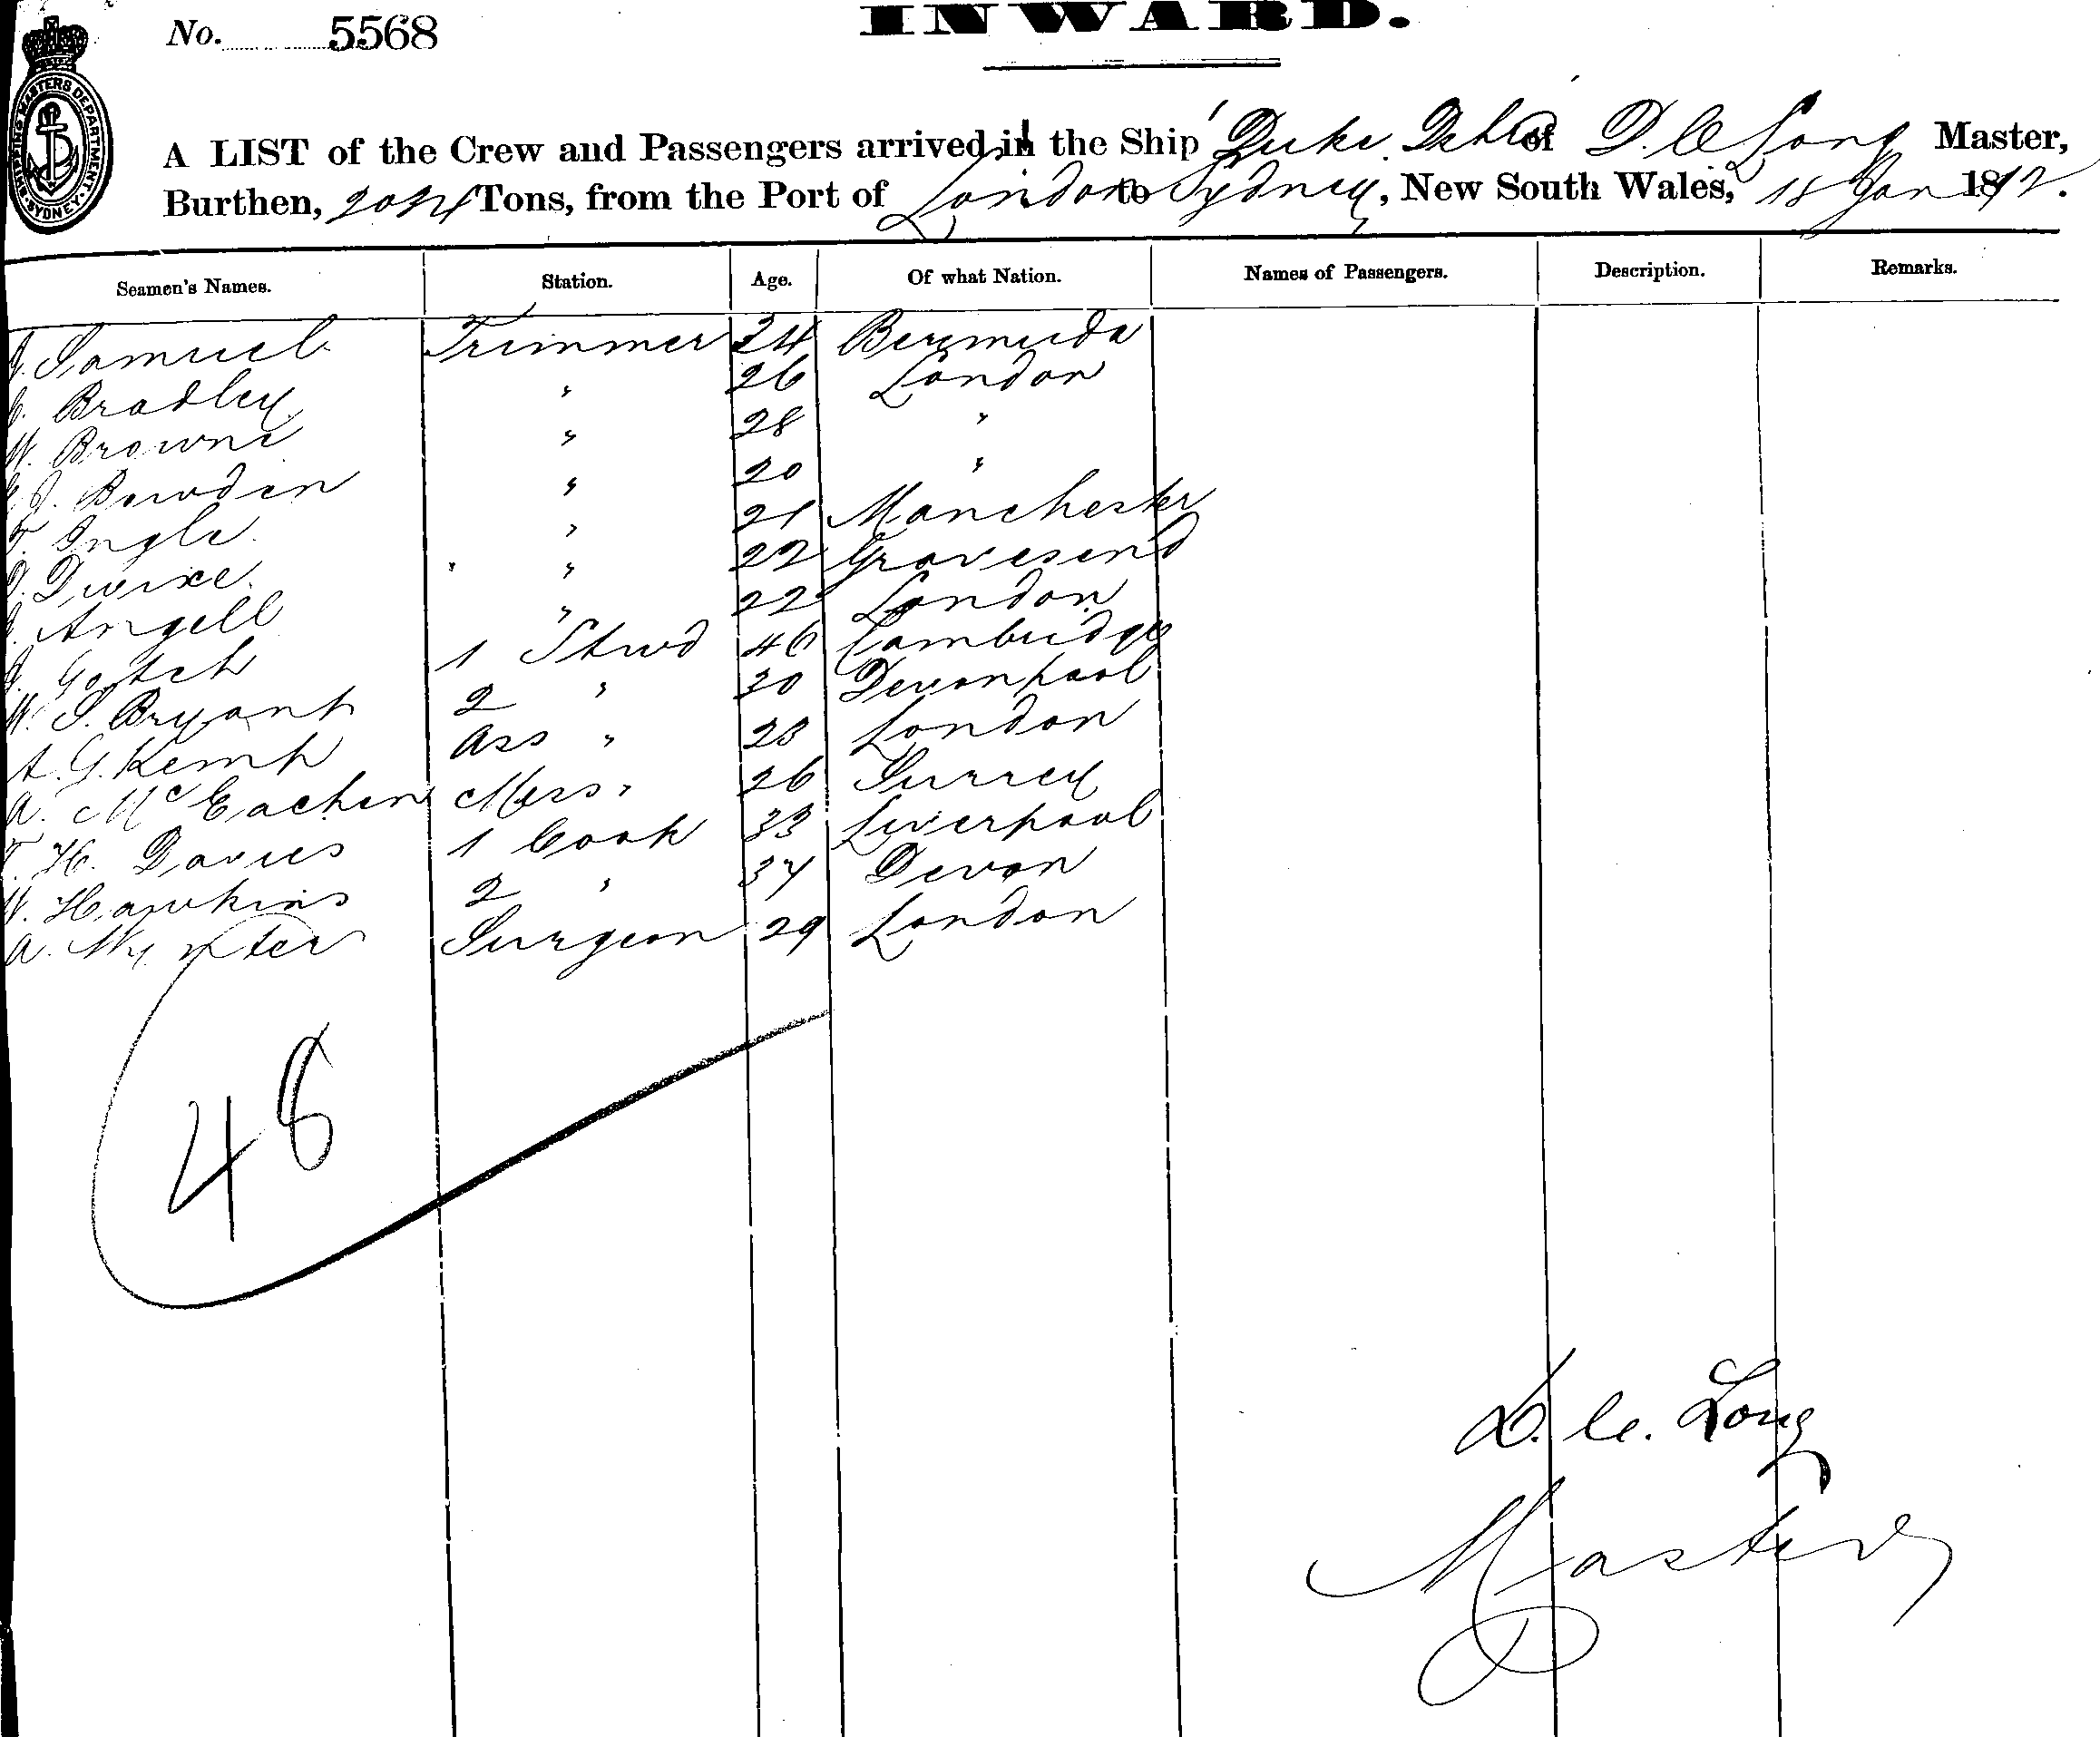 No. 5568
INWARD.
SHIPPING MASTERS DEPARTMENT SYDNEY
A LIST of the Crew and Passengers arrived in the Ship Duke of D. C. Long Master,
Burthen, Tons, from the Port of London to Sydney, New South Wales, 18 Jan 18
Seamen's Names. Station. Age. Of what Nation. Names of Passengers. Description. Remarks.
J. Samuel Trimmer 24 Bermuda
Bradley " 26 London
W. Browne " 28 "
J. Bowden " 20 "
T. Ingle " 21 Manchester
" 22 Gravesend
Angell " 22 London
Gotch 1 Stwd 46 Cambridge
W. S. Bryant 2 " 30 Devonport
A. G. Kemp Ass " 23 London
A. McEachen Mess " 26 Surrey
T. H. Davies 1 Cook 33 Liverpool
W. Hawkins 2 " 34 Devon
A. Surgeon 29 London
48
D. C. Long
Master